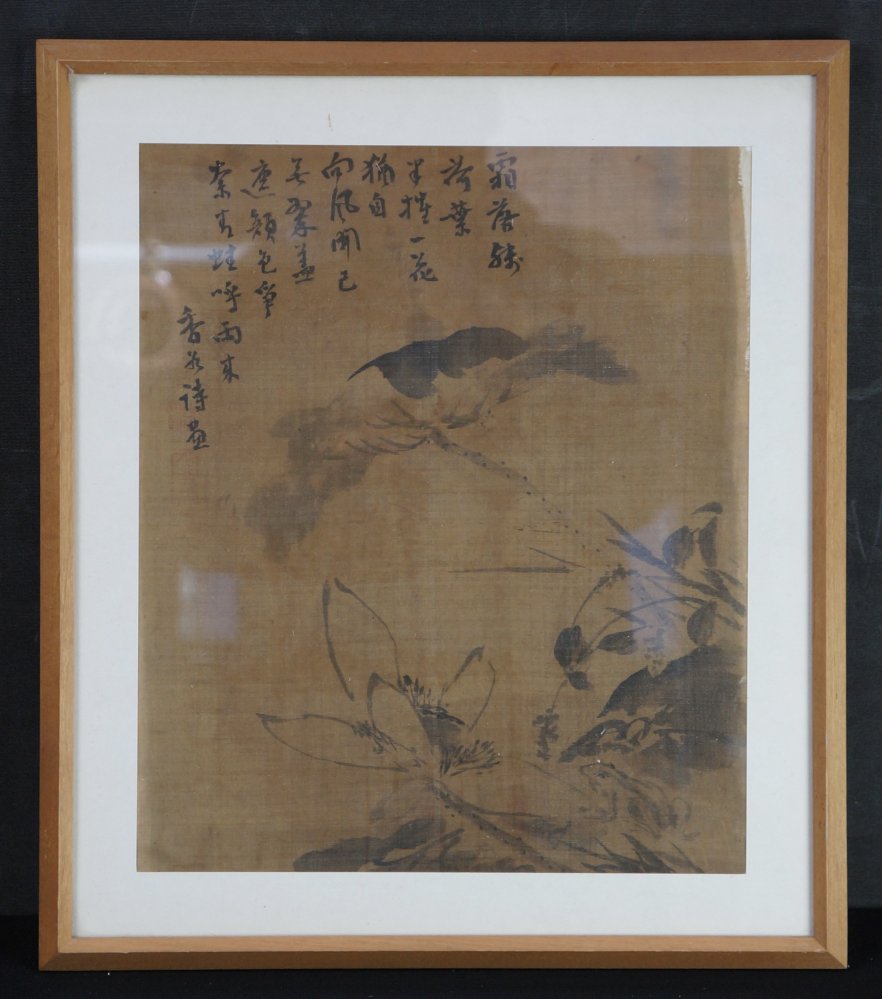 霜落殘
荷葉
半摧一花
猶自
向風開已
無翠蓋
遮顏色爭
奈青蛙呼雨來
香 詩畫